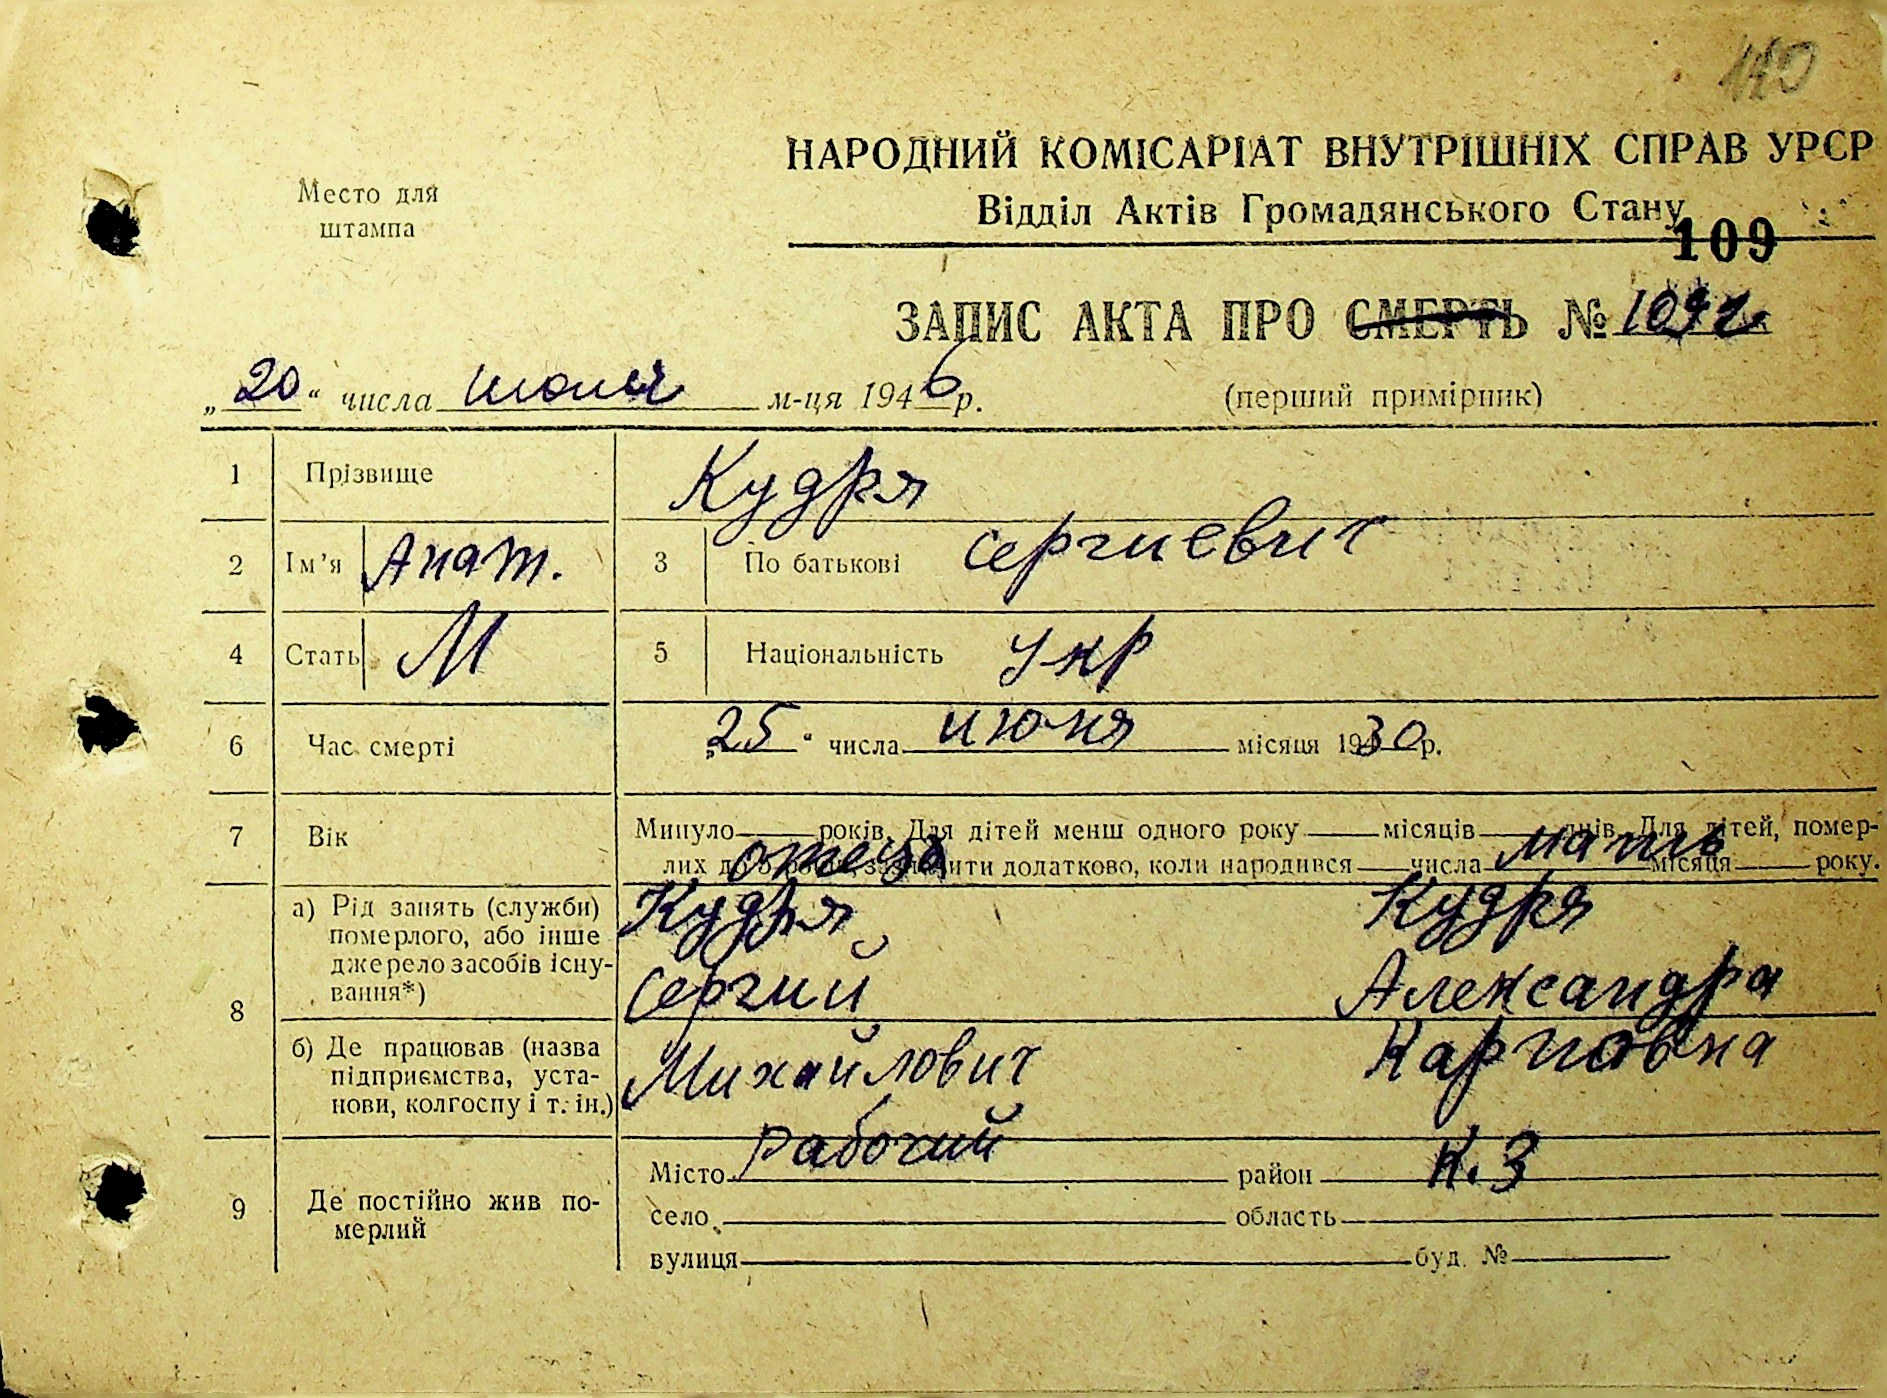 110
НАРОДНИЙ КОМІСАРІАТ ВНУТРІШНІХ СПРАВ УРСР
Место для
штампа
Відділ Актів Громадянського Стану
109
ЗАПИС АКТА ПРО СМЕРТЬ № 109
„20“ числа июня м-ця 1946 р. (перший примірник)
1 Прізвище Кудря
2 Ім’я Анат. 3 По батькові Сергиевич
4 Стать М 5 Національність Укр
6 Час смерті „25“ числа июня місяця 1930 р.
7 Вік Минуло років. Для дітей менш одного року місяців днів. Для дітей, помер-
лих до 5 років, зазначити додатково, коли народився числа місяця року.
отець мать
8 а) Рід занять (служби) Кудря Кудря
померлого, або інше
джерело засобів існу- Сергий Александра
вання*)
б) Де працював (назва Михайлович Карповна
підприємства, уста-
нови, колгоспу і т. ін.)
9 Де постійно жив по-
мерлий
Місто рабочий район К.З
село область
вулиця буд. №